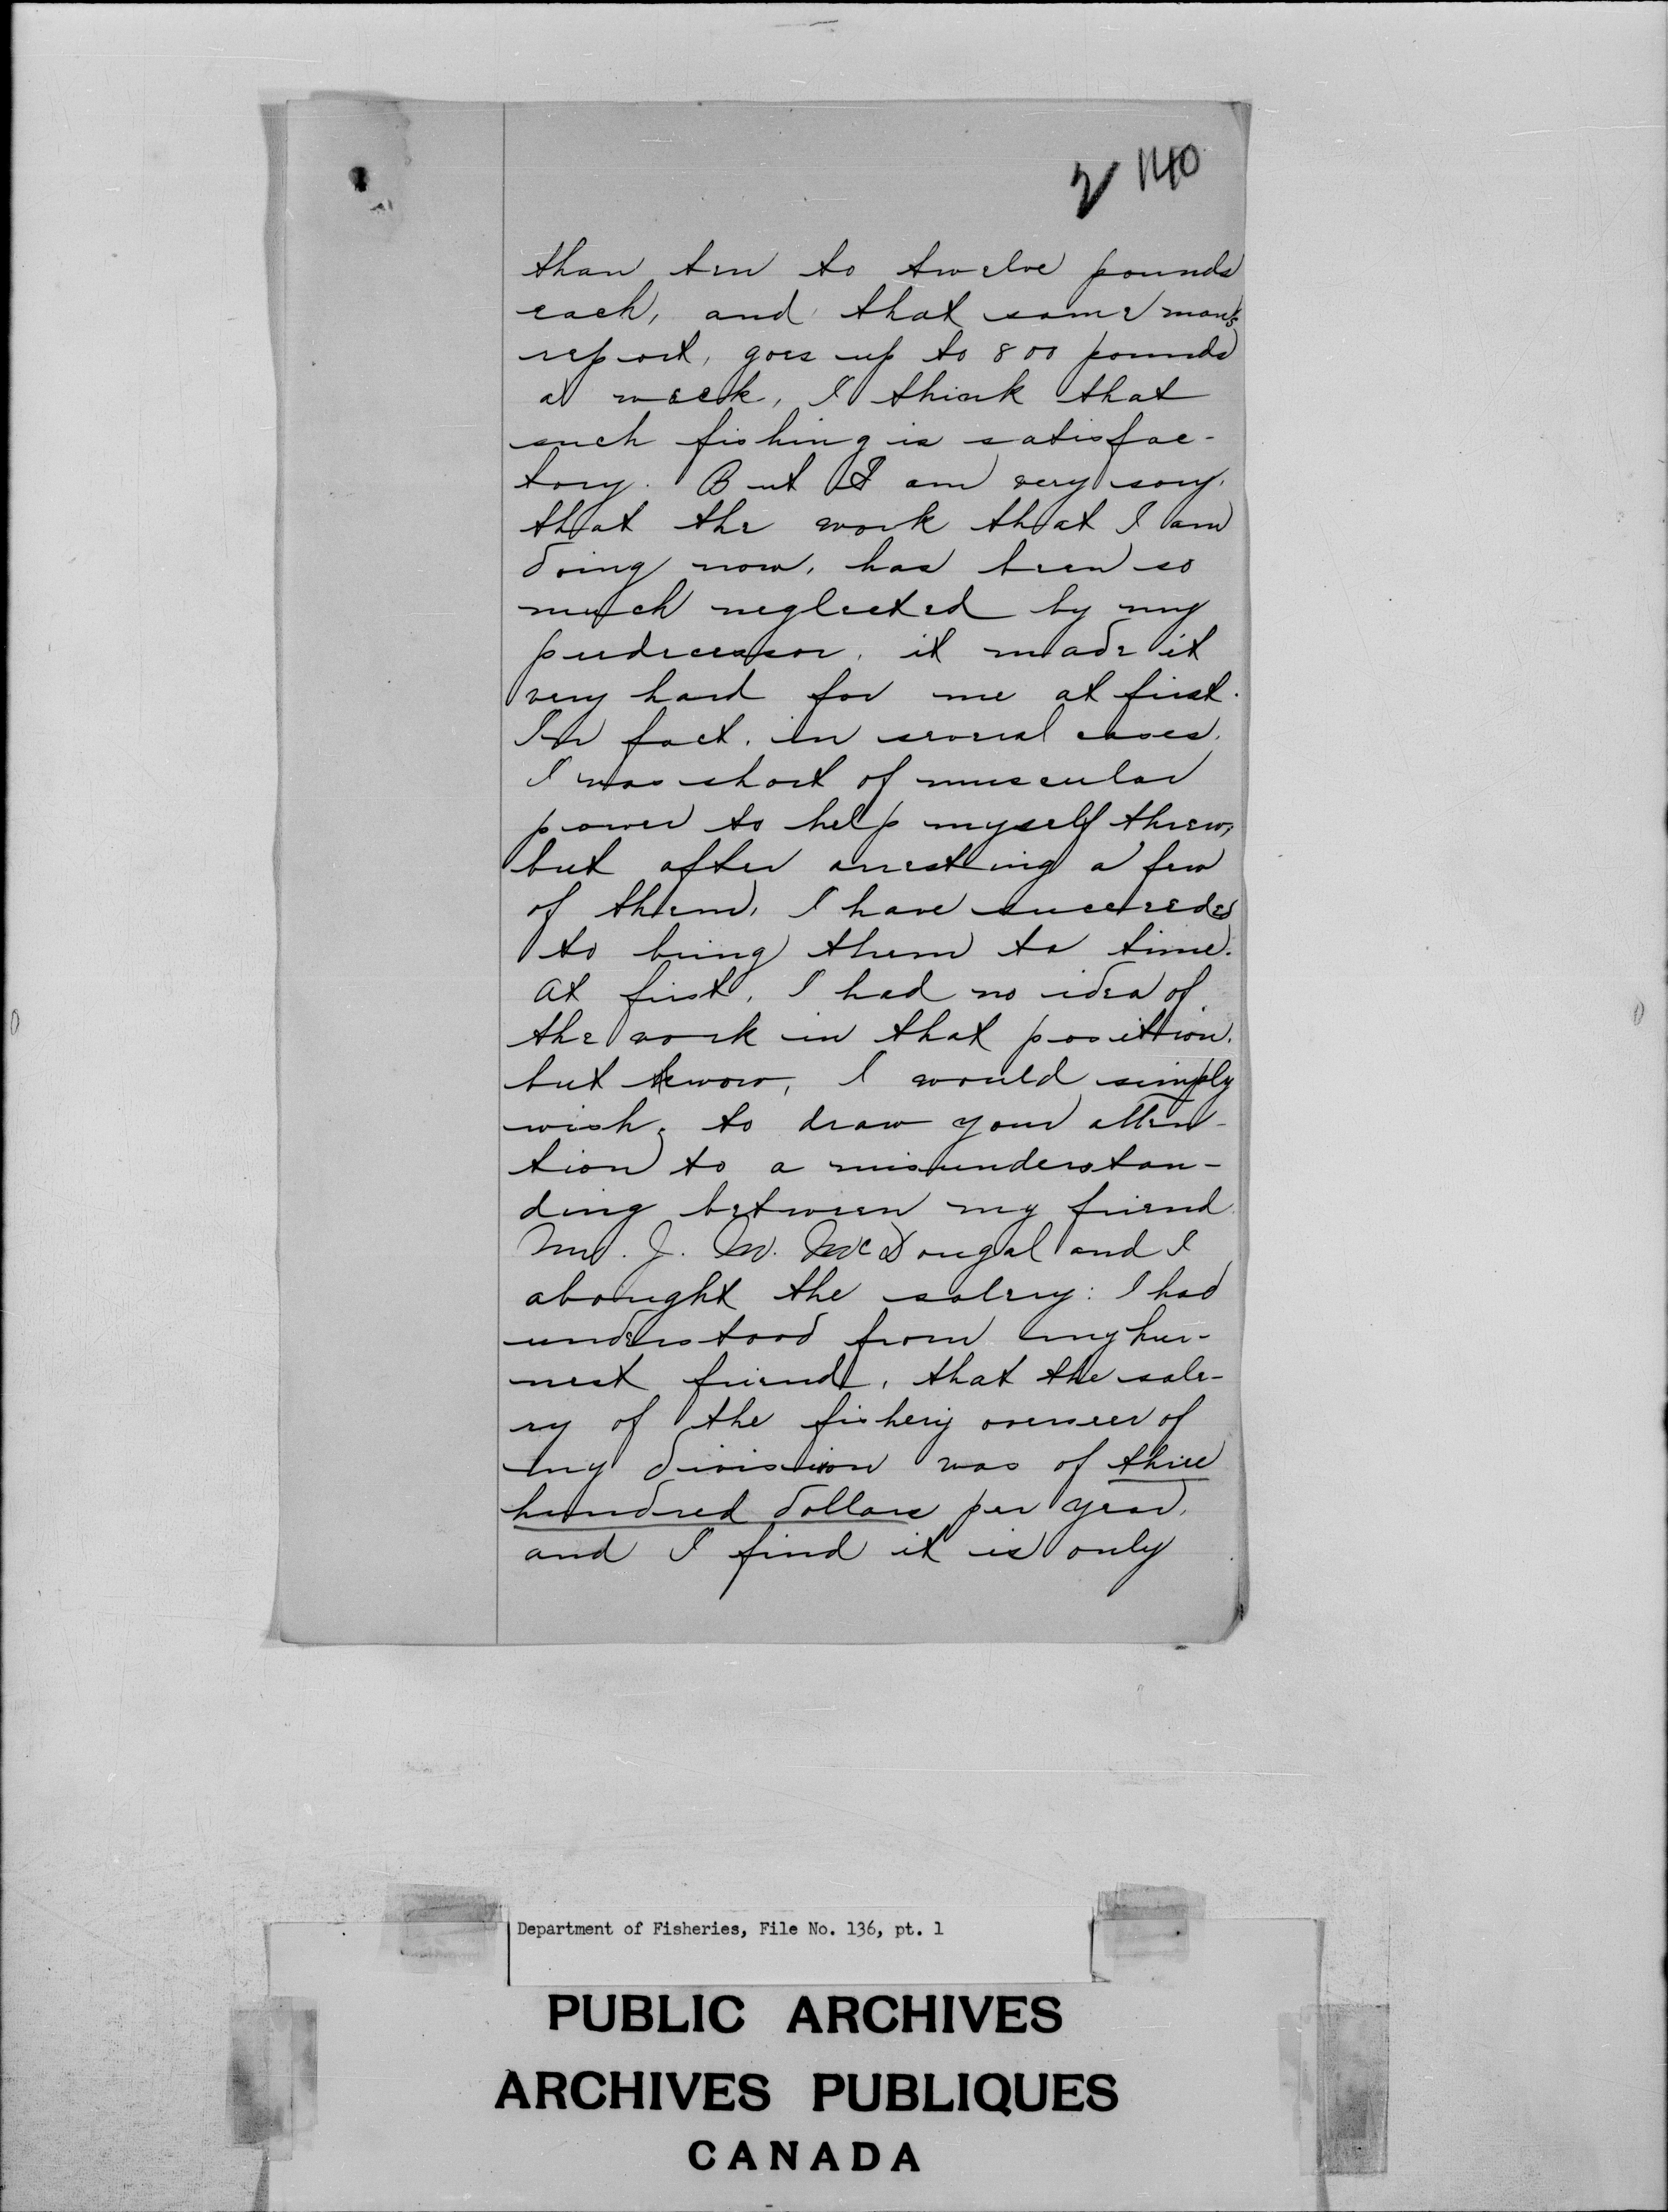 2 140
than ten to twelve pounds
each, and that same man's
report, goes up to 800 pounds
a week, I think that
such fishing is satisfac-
tory. But I am very sory.
that the work that I am
doing now, has been so
much neglected by my
predecessor, it made it
very hard for me at first.
In fact, in several cases,
I was short of muscular
power to help myself threw,
but after arresting a few
of them, I have succeeeded
to bring them to time.
At first, I had no idea of
the work in that position.
but now, I would simply
wish, to draw your atten-
tion to a misunderstan-
ding between my friend
Mr. J. M. McDougal and I
abought the salery: I had
understood from my hur-
nest friend, that the sale-
ry of the fishery overseer of
my division was of three
hundred dollars per year,
and I find it is only
Department of Fisheries, File No. 136, pt. 1
PUBLIC ARCHIVES
ARCHIVES PUBLIQUES
CANADA